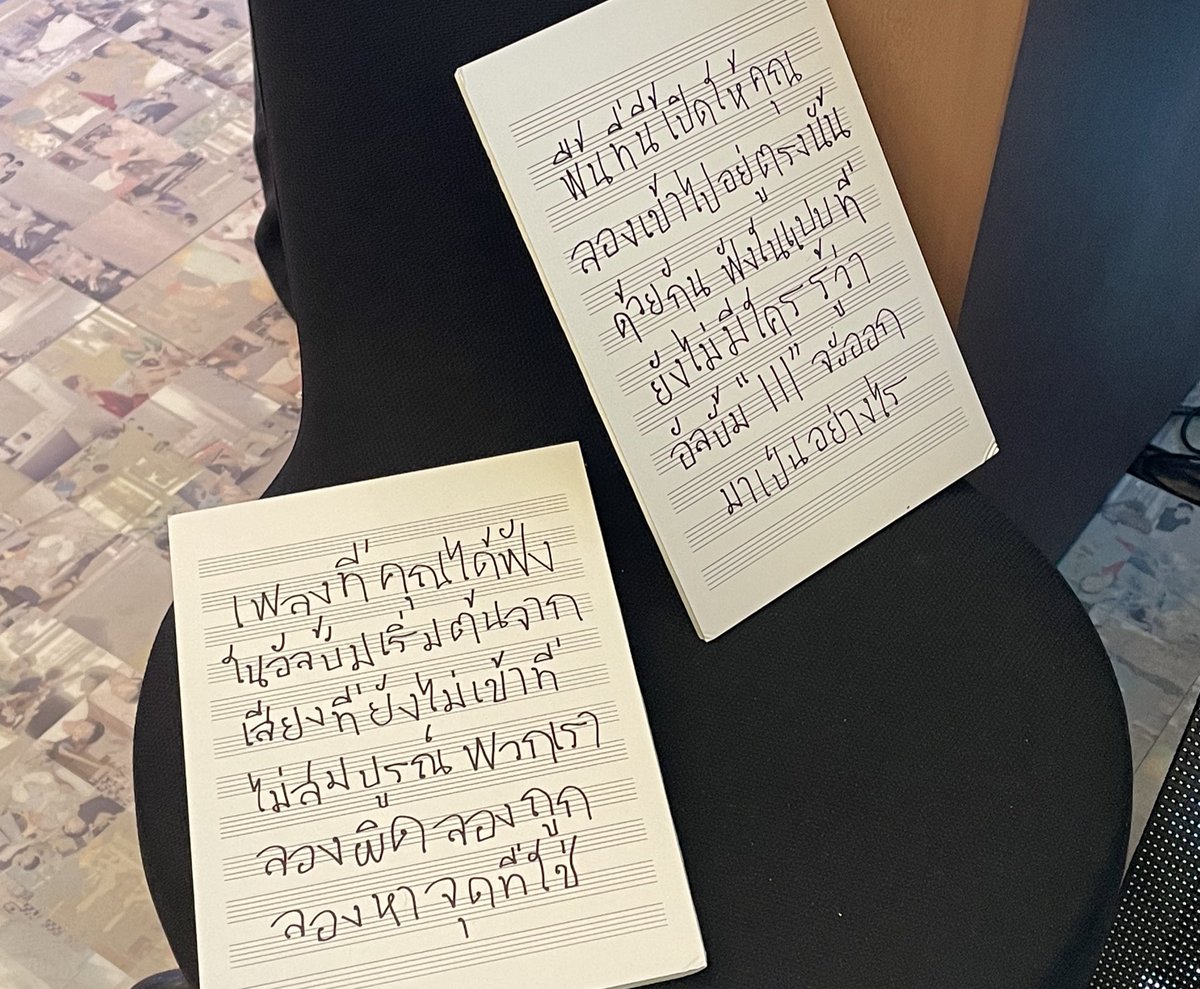 เพลงที่คุณได้ฟัง
ในอัลบั้มเริ่มต้นจาก
เสียงที่ยังไม่เข้าที่
ไม่สมบูรณ์ พวกเรา
ลองผิด ลองถูก
ลองหาจุดที่ใช่
พื้นที่นี้เปิดให้คุณ
ลองเข้าไปอยู่ตรงนั้น
ด้วยกัน ฟังในแบบที่
ยังไม่มีใครรู้ว่า
อัลบั้ม "|||" จะออก
มาเป็นอย่างไร